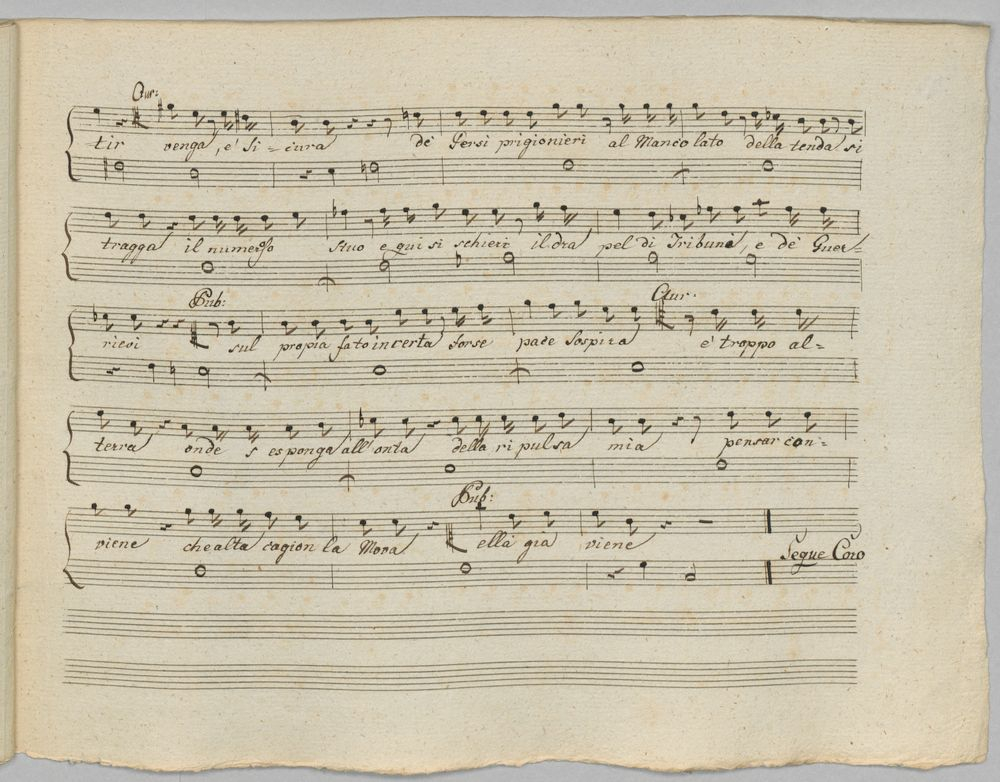 Aur:
tir venga, e' si=cura de' Persi prigionieri al Manco lato della tenda si
tragga il numeroso stuo e qui si schieri il dra pel di Tribuni, e de' Guer=
Pub: Aur:
rieri sul propia fato incerta forse pace sospira e' troppo al=
terra onde s esponga all'onta della ri pulsa mia pensar con=
Pub:
viene che alta cagion la Mova ella gia viene
Segue Coro